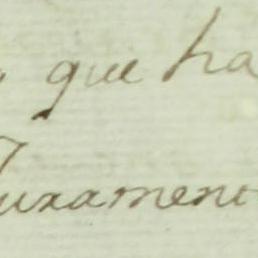 que ha
Juxament